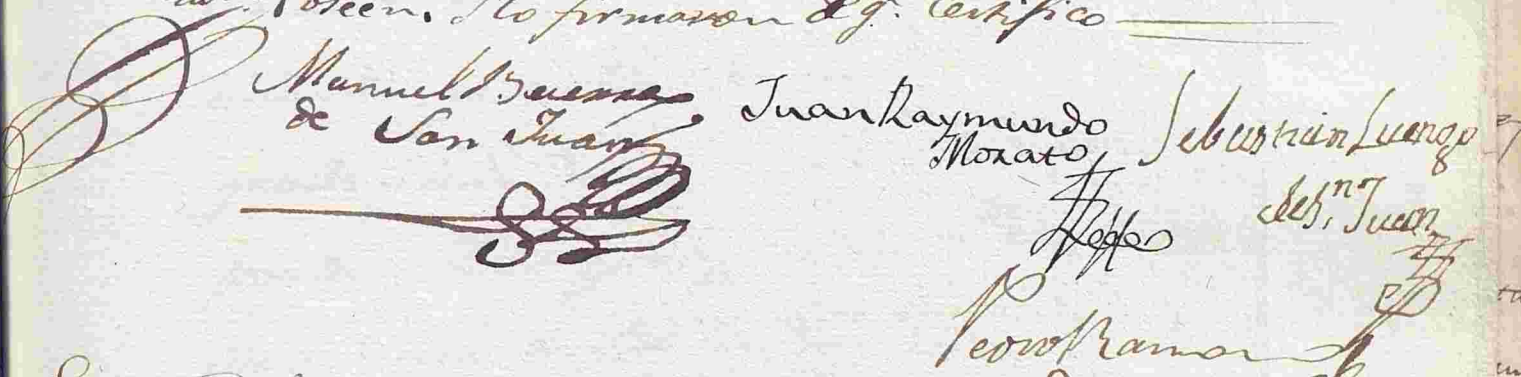 Poseen. Y lo firmaron de q.e Certifico
Manuel Becerra
de San Juan
Juan Raymundo
Morato
Sebastian Luengo
de S.n Juan
Pedro Ramon